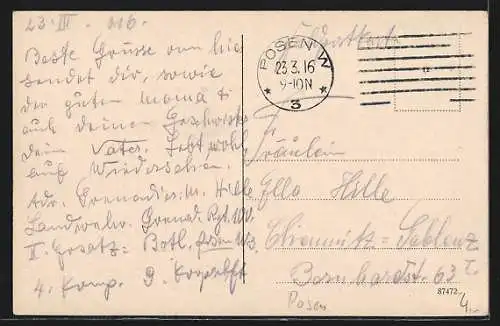 23. III. 016.
Beste Grüsse von hier
sendet dir, sowie
der guten Mama &
auch deinen Geschwister
dein Vater. Lebt wohl
auf Wiedersehen.
Adr. Grenadier M. Hille
Landwehr. Grenad. Rgt. 100.
II. Ersatz: Batl. Posen W3
4. Komp. 9. Korpralft
Feldpostkarte
POSEN W
23.3.16
9-10N
* 3 *
Fräulein
Ella Hille
Chemnitz-Gablenz
Bernhardst. 63 I.
87472
Posen
4,-